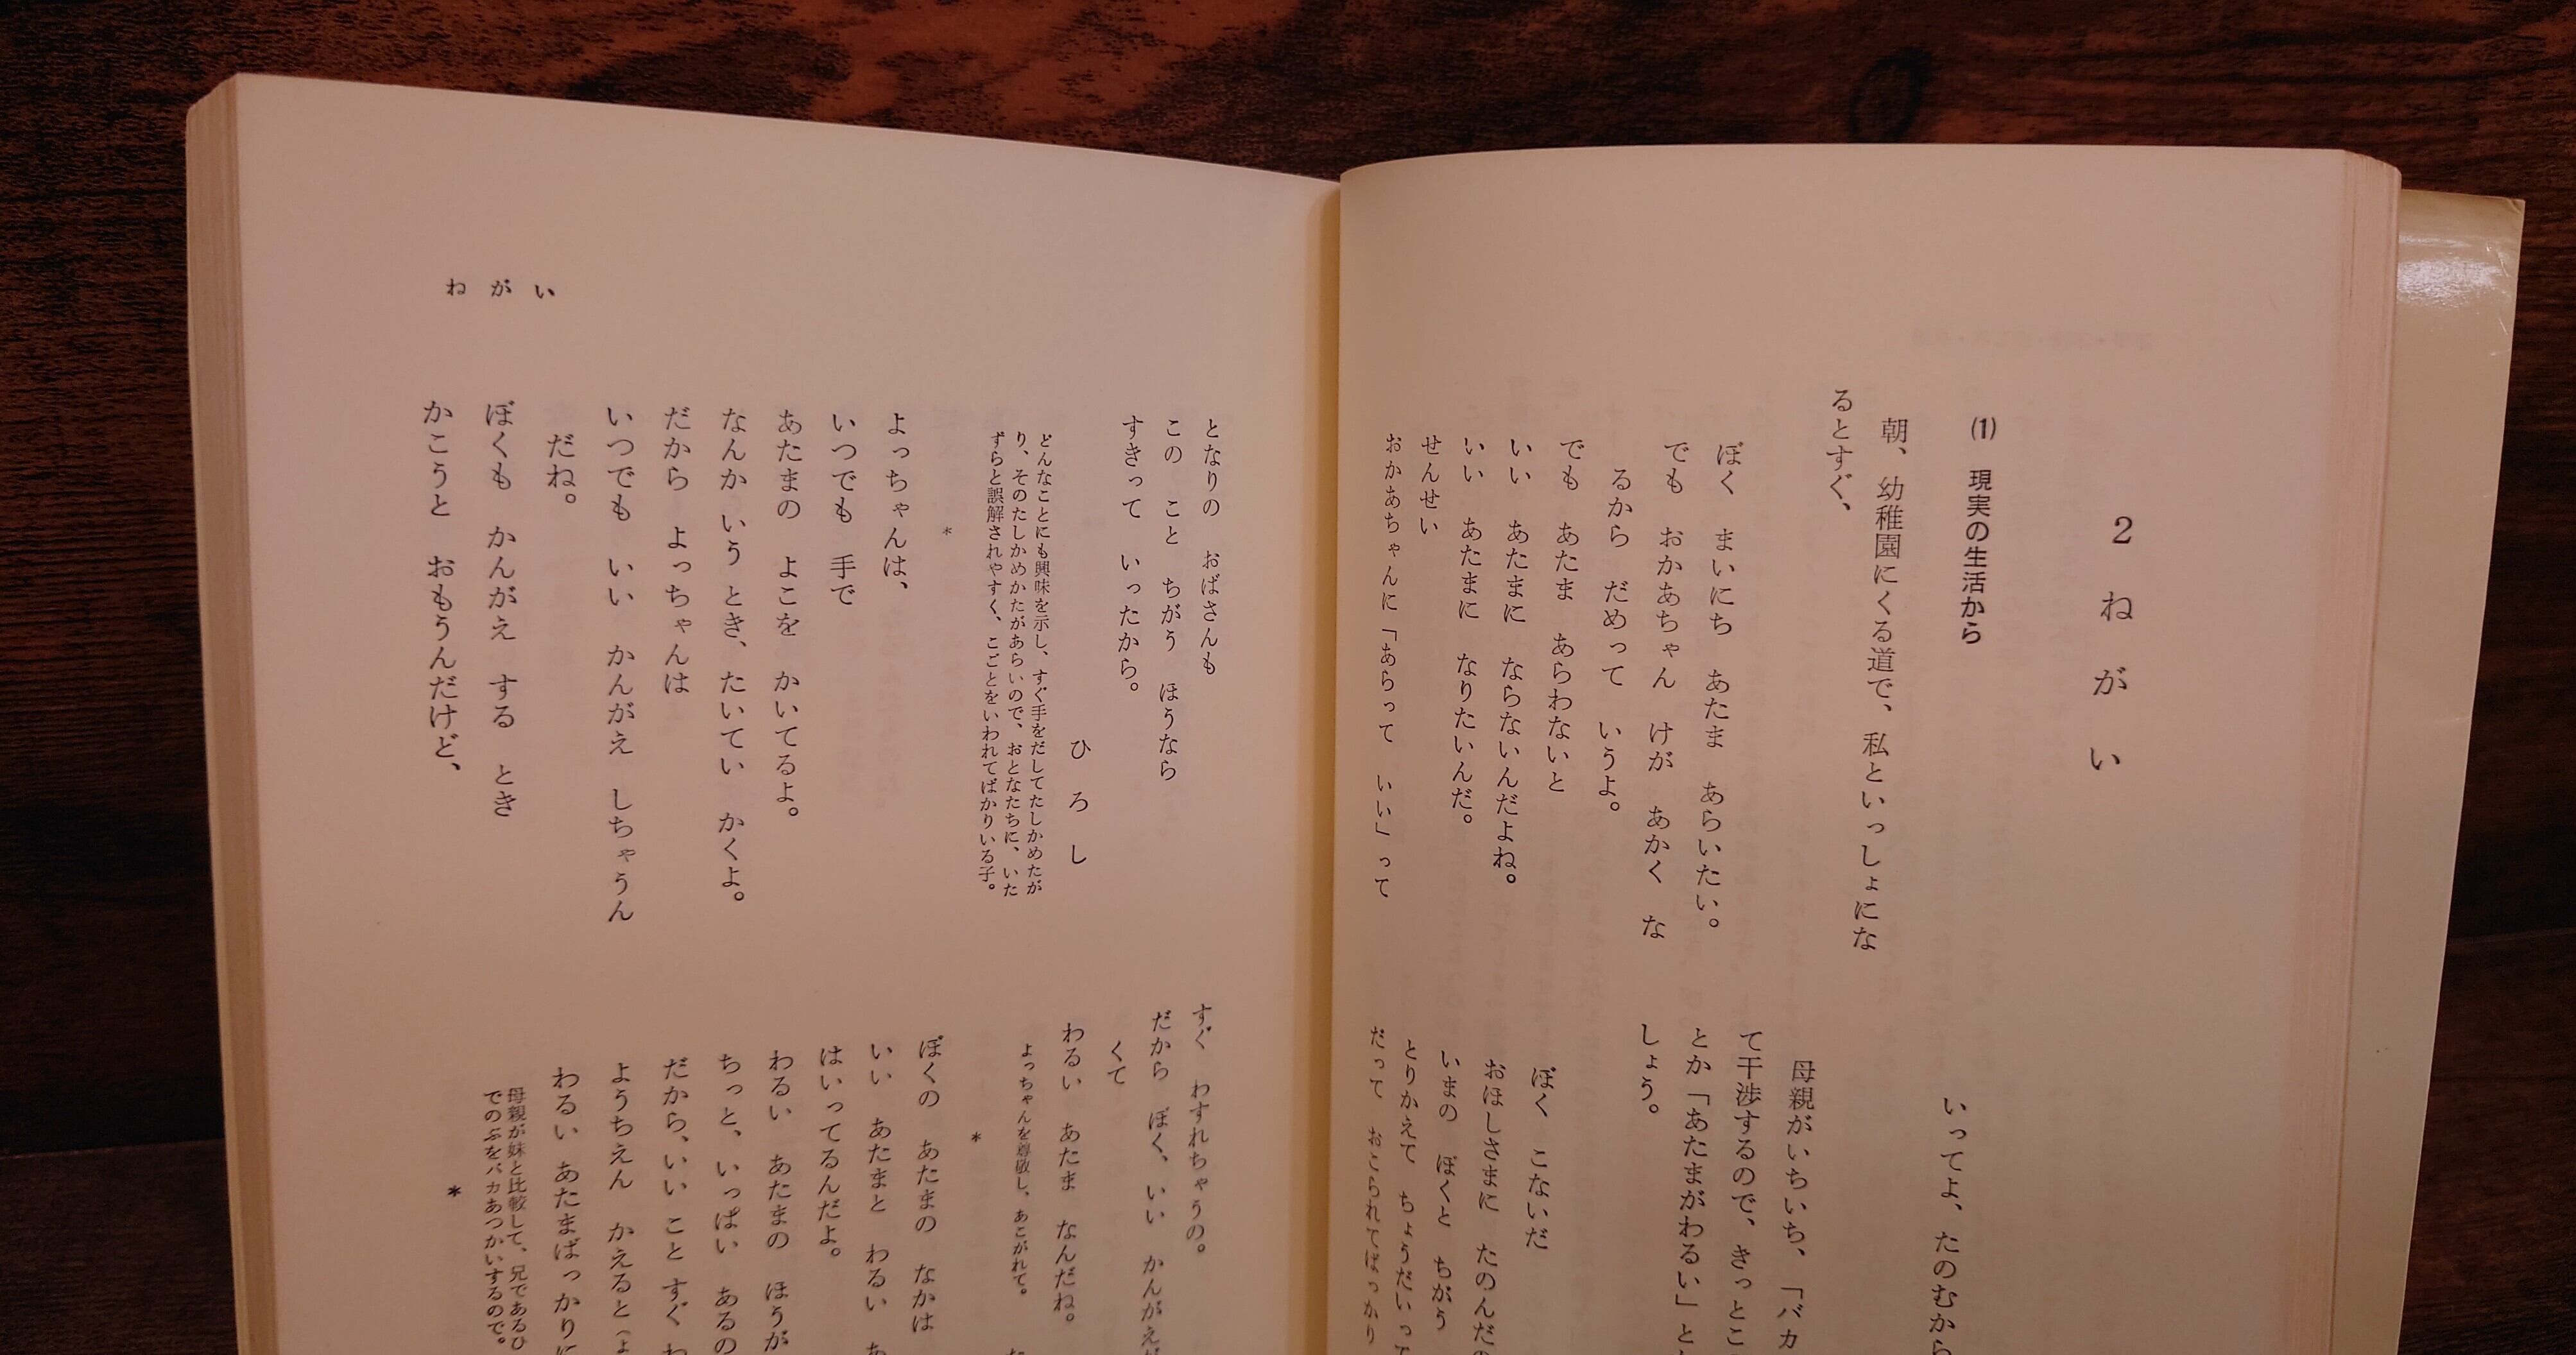 2 ねがい
(1) 現実の生活から
朝、幼稚園にくる道で、私といっしょにな
るとすぐ、
ぼく まいにち あたま あらいたい。
でも おかあちゃん けが あかく な
るから だめって いうよ。
でも あたま あらわないと
いい あたまに ならないんだよね。
いい あたまに なりたいんだ。
せんせい
おかあちゃんに「あらって いい」って
いってよ、たのむから
母親がいちいち、「バカ
て干渉するので、きっとこ
とか「あたまがわるい」と
しょう。
ぼく こないだ
おほしさまに たのんだの
いまの ぼくと ちがう
とりかえて ちょうだいって
だって おこられてばっかり
ねがい
となりの おばさんも
この こと ちがう ほうなら
すきって いったから。
ひろし
どんなことにも興味を示し、すぐ手をだしてたしかめたが
り、そのたしかめかたがあらいので、おとなたちに、いた
ずらと誤解されやすく、こごとをいわれてばかりいる子。
*
よっちゃんは、
いつでも 手で
あたまの よこを かいてるよ。
なんか いう とき、たいてい かくよ。
だから よっちゃんは
いつでも いい かんがえ しちゃうん
だね。
ぼくも かんがえ する とき
かこうと おもうんだけど、
すぐ わすれちゃうの。
だから ぼく、いい かんがえが
くて
わるい あたま なんだね。
よっちゃんを尊敬し、あこがれて。
*
ぼくの あたまの なかは
いい あたまと わるい あ
はいってるんだよ。
わるい あたまの ほうが
ちっと、いっぱい あるの
だから、いい こと すぐ わ
ようちえん かえると(よ
わるい あたまばっかりに
母親が妹と比較して、兄であるひ
でのぶをバカあつかいするので。
*